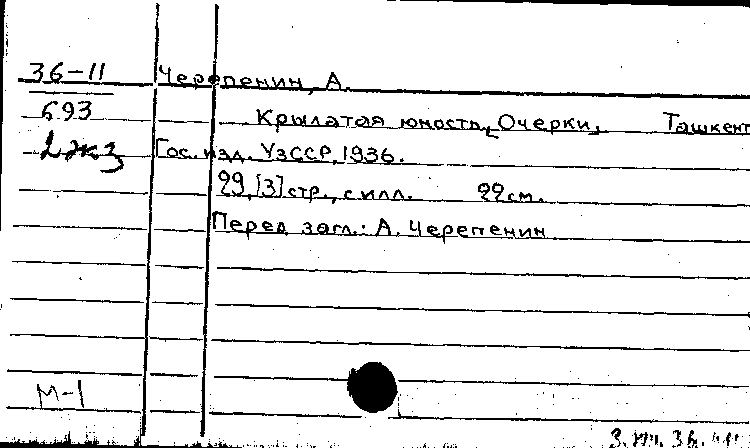 36-11 Черепенин, А.
693 Крылатая юность, Очерки, Ташкент
2 экз Гос. изд. УзССР, 1936.
29, [3] стр., с илл. 22 см.
Перед загл.: А. Черепенин
М-1